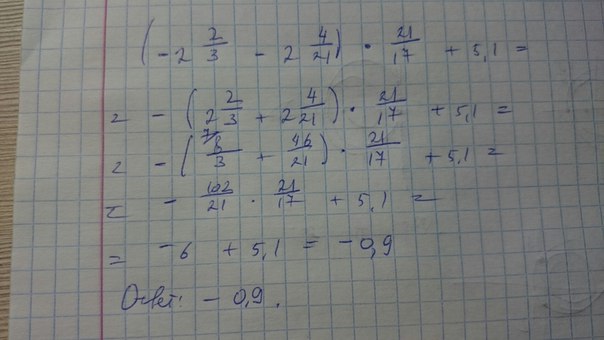 (-2 2/3 - 2 4/21) · 21/17 + 5,1 =
= -(2 2/3 + 2 4/21) · 21/17 + 5,1 =
= -(8/3 7/ + 46/21) · 21/17 + 5,1 =
= - 102/21 · 21/17 + 5,1 =
= -6 + 5,1 = -0,9
Ответ: -0,9.